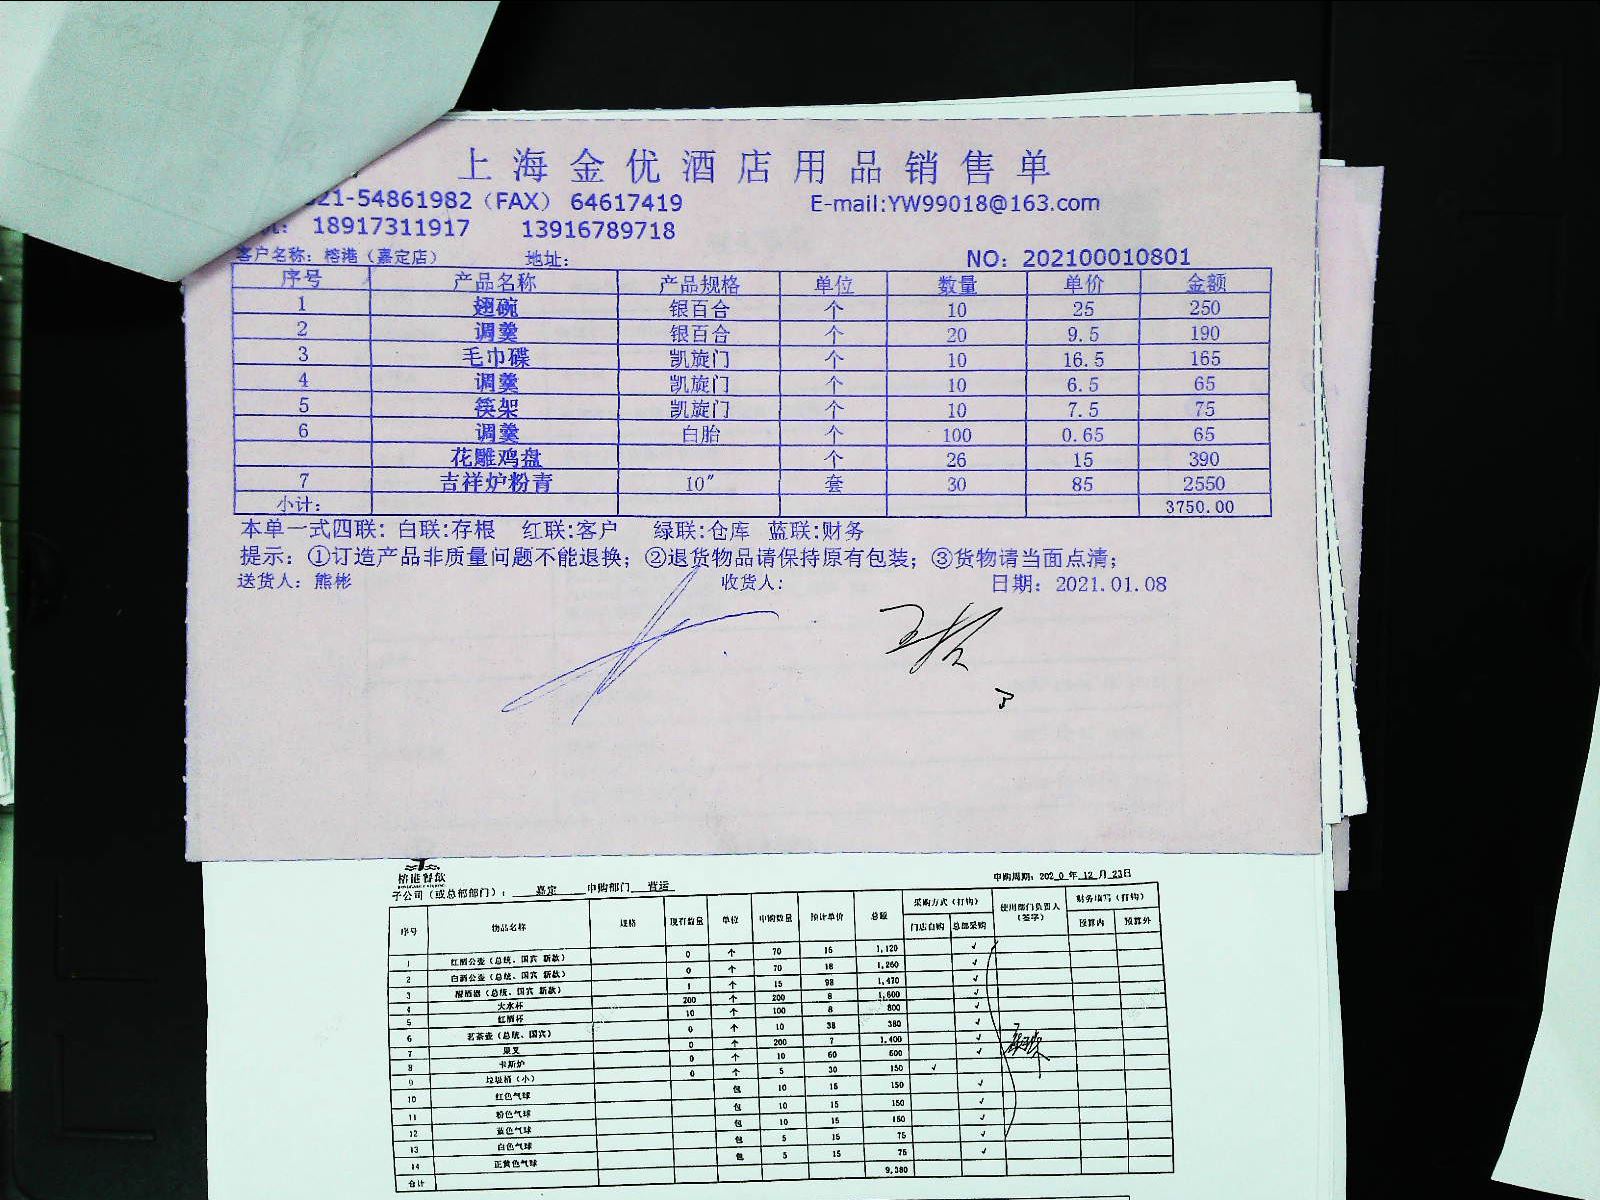 上海金优酒店用品销售单
21-54861982（FAX） 64617419 E-mail:YW99018@163.com
18917311917 13916789718
客户名称: 榕港（嘉定店） 地址: NO: 202100010801
序号 产品名称 产品规格 单位 数量 单价 金额
1 翅碗 银百合 个 10 25 250
2 调羹 银百合 个 20 9.5 190
3 毛巾碟 凯旋门 个 10 16.5 165
4 调羹 凯旋门 个 10 6.5 65
5 筷架 凯旋门 个 10 7.5 75
6 调羹 白胎 个 100 0.65 65
花雕鸡盘 个 26 15 390
7 吉祥炉粉青 10″ 套 30 85 2550
小计: 3750.00
本单一式四联: 白联:存根 红联:客户 绿联:仓库 蓝联:财务
提示: ①订造产品非质量问题不能退换; ②退货物品请保持原有包装; ③货物请当面点清;
送货人: 熊彬 收货人: 日期: 2021.01.08
榕港餐饮
子公司（或总部部门）: 嘉定 申购部门 营运 申购周期: 2020 年 12 月 23日
序号 物品名称 规格 现存数量 单位 申购数量 预计单价 总额 采购方式（打钩） 使用部门负责人（签字） 财务填写（打钩）
门店自购 总部采购 预算内 预算外
1 红酒公壶（总统、国宾 新款） 0 个 70 16 1,120 √
2 白酒公壶（总统、国宾 新款） 0 个 70 18 1,260 √
3 醒酒器（总统、国宾 新款） 1 个 15 98 1,470 √
4 大水杯 200 个 200 8 1,600 √
5 红酒杯 10 个 100 8 800 √
6 茗茶壶（总统、国宾） 0 个 10 38 380 √
7 果叉 0 个 200 7 1,400 √
8 卡斯炉 0 个 10 60 600 √
9 垃圾桶（小） 0 个 5 30 150 √
10 红色气球 包 10 15 150 √
11 粉色气球 包 10 15 150 √
12 蓝色气球 包 10 15 150 √
13 白色气球 包 5 15 75 √
14 正黄色气球 包 5 15 75 √
合计 9,380